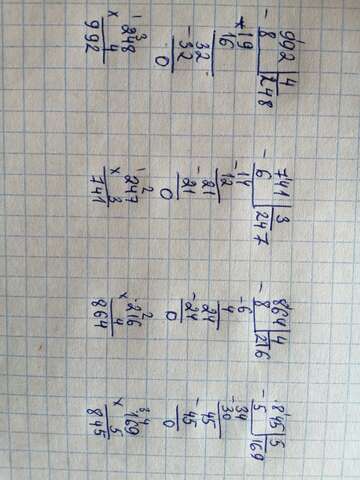 - 992 4
8 248
- 19
16
- 32
32
0
1 3
× 248
4
992
- 741 3
6 247
- 14
12
- 21
21
0
1 2
× 247
3
741
- 864 4
8 216
- 6
4
- 24
24
0
2
× 216
4
864
- 845 5
5 169
- 34
30
- 45
45
0
3 4
× 169
5
845